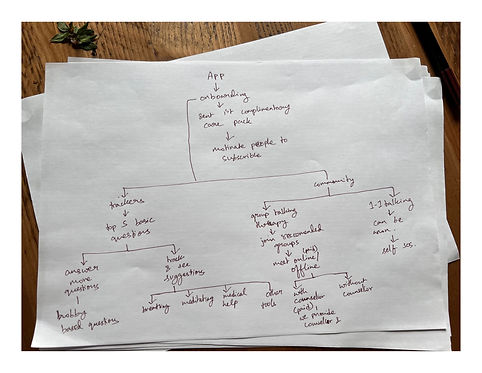 App
onboarding
sent 1st complimentary
care pack
motivate people to
subscribe
trackers
top 5 basic
questions
answer
more
questions
based questions
track
& see
suggestions
breathing
meditating
medical
help
other
tools
community
group talking
therapy
join recommended
groups
(paid)
meet online/
offline
with
counselor
(paid)
we provide
without
counselor
1-1 talking
can be
anon.
self